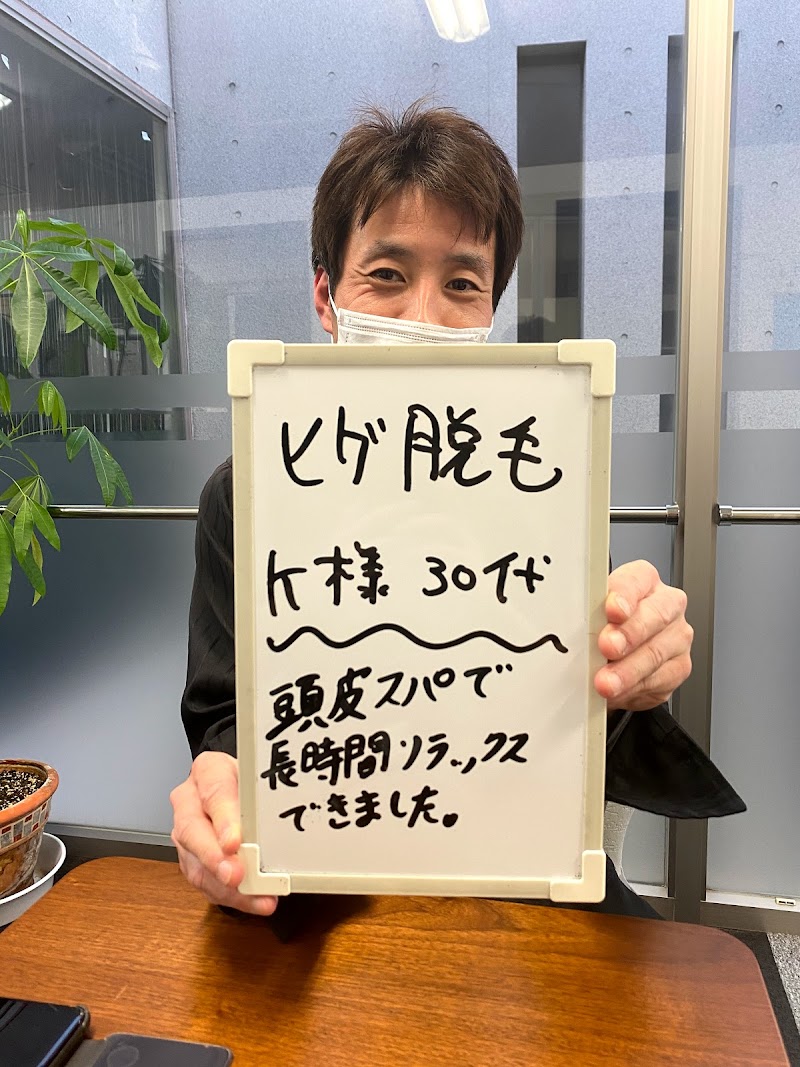 ヒゲ脱毛
K様 30代
頭皮スパで
長時間リラックス
できました。